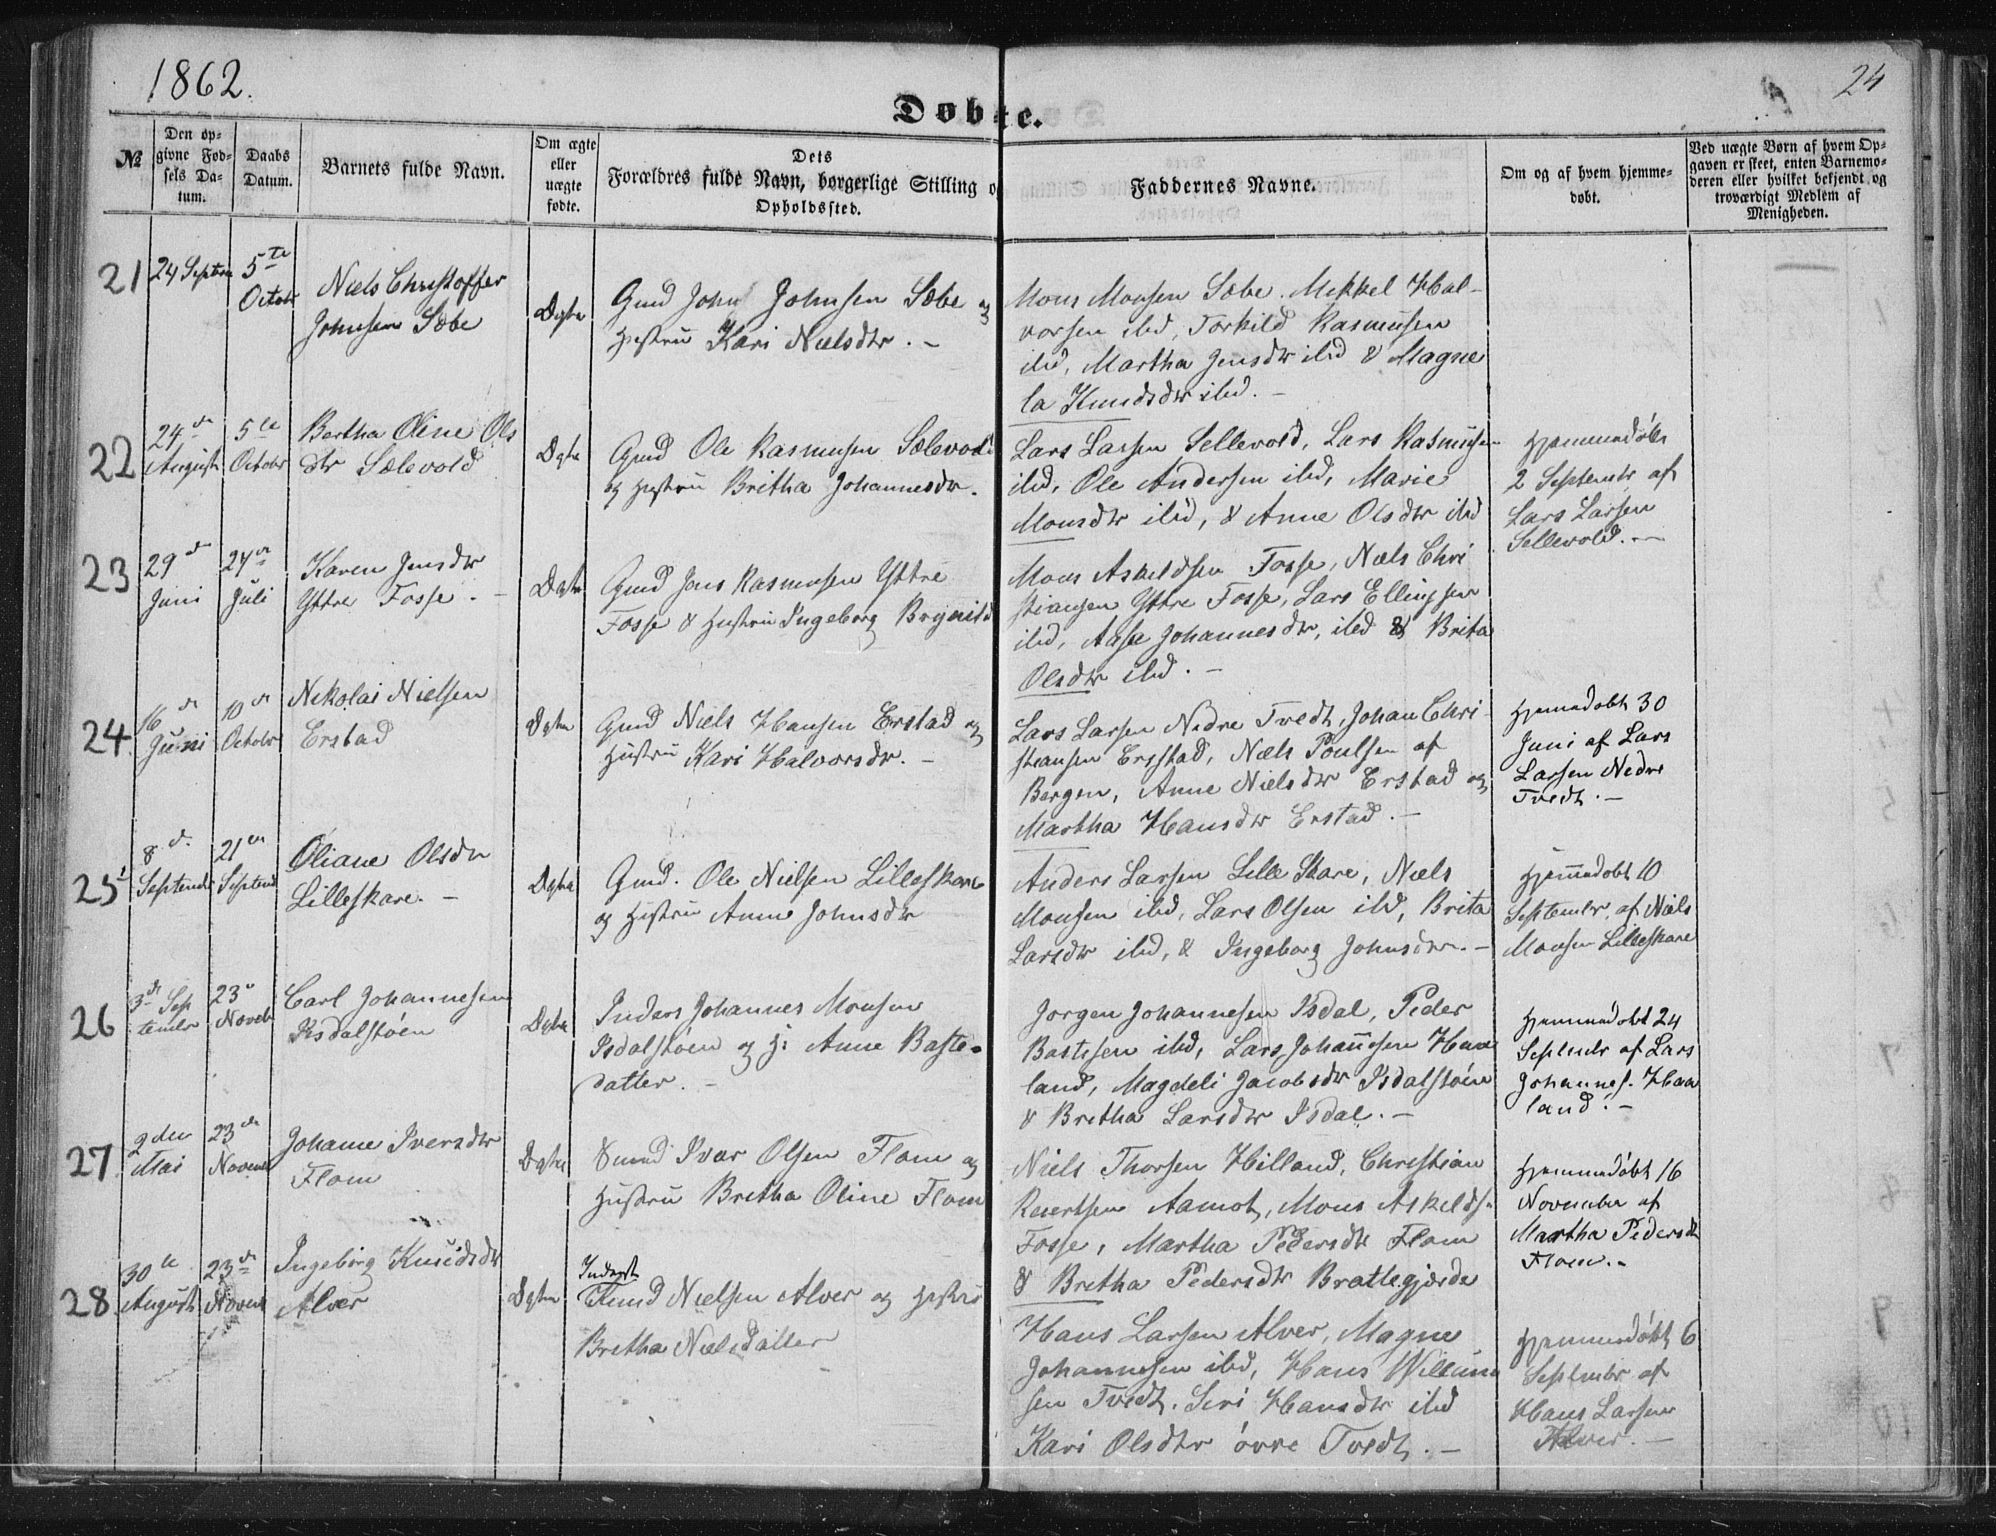 1862.
24
Døbte.
№
Den op-
givne Fød-
sels Da-
tum.
Daabs
Datum.
Barnets fulde Navn.
Om ægte
eller
uægte
fødte.
Dets
Forældres fulde Navn, borgerlige Stilling o
Opholdssted.
Faddernes Navne.
Om og af hvem hjemme-
døbt.
Ved uægte Børn af hvem Op-
gaven er skeet, enten Barnemo-
deren eller hvilket bekjendt og
troværdigt Medlem af
Menigheden.
21
24 Septbr
5te
Octobr
Niels Christoffer
Johnsen Sæbe
Ægte
Gmd John Johnsen Sæbe og
Hustru Kari Nielsdtr. -
Mons Monsen Sæbe. Mikkel Hal-
vorsen ibd, Torkild Rasmusen
ibd, Martha Jensdtr ibd & Magne
la Knudsdtr ibd. -
22
24de
August
5te
Octobr
Bertha Oline Ols
dtr Sælevold
Ægte
Gmd Ole Rasmusen Sælevold
og Hustru Britha Johannesdtr.
Lars Larsen Sellevold, Lars Rasmusen
ibd, Ole Andersen ibd, Marie
Monsdtr ibd, & Anne Olsdtr ibd
Hjemmedøbt
2 Septembr af
Lars Larsen
Sellevold. -
23
29de
Juni
24de
Juli
Karen Jensdtr
Yttre Fosse. -
Ægte
Gmd Jens Rasmusen Yttre
Fosse & Hustru Ingeborg Brynildd
Mons Askeldsen Fosse, Niels Chri
stiansen Yttre Fosse, Lars Ellingsen
ibd, Aase Johannesdtr, ibd & Brita
Olsdtr ibd. -
24
16de
Juni
10de
Octobr
Nikolai Nielsen
Erstad
Ægte
Gmd Niels Hansen Erstad og
Hustru Kari Halvorsdr. -
Lars Larsen Nedre Tvedt, Johan Chri-
stiansen Erstad, Niels Poulsen af
Bergen, Anne Nielsdtr Erstad og
Martha Hansdtr Erstad. -
Hjemmedøbt 30
Juni af Lars
Larsen Nedre
Tvedt. -
25
8de
Septembr
21de
Septemb
Oliane Olsdtr
Lilleskare. -
Ægte
Gmd. Ole Nielsen Lilleskare
og Hustru Anne Johnsdtr
Anders Larsen Lille Skare, Niels
Monsen ibd, Lars Olsen ibd, Brita
Larsdtr ibd, & Ingeborg Johnsdtr. -
Hjemmedøbt 10
Septembr, af Niels
Monsen Lilleskare
26
3de Sep
tembr
23de
Novebr
Carl Johannesen
Isdalstøen
Ægte
Inders Johannes Monsen
Isdalstøen og H: Anne Baste-
datter. -
Jørgen Johannesen Isdal, Peder
Bastesen ibd, Lars Johannesen Haa
land, Magdeli Jacobsdtr Isdalstøen
& Bretha Larsdtr Isdal. -
Hjemmedøbt 24
Septembr af Lars
Johannes. Haa
land. -
27
2den
Mai
23de
Novem
Johanne Iversdtr
Flom
Ægte
Gmd Ivar Olsen Flom og
Hustru Bretha Oline Flom
Niels Thorsen Hilland, Christian
Aamot, Mons Askelds.
Fosse, Martha Pedersdtr Flom
& Bretha Pedersdtr Brattegjærde
Hjemmedøbt 16
November af
Martha Pedersdtr
Flom. -
28
30te
August
23de
Novem
Ingeborg Knudsdtr
Alver
Ægte
Inderst
Knud Nielsen Alver og Hustru
Bretha Nielsdatter
Hans Larsen Alver, Magne
Johannesen ibd, Hans Willum
sen Tvedt. Siri Hansdtr ibd
Kari Olsdtr øvre Tvedt. -
Hjemmedøbt 6
Septembr af
Hans Larsen
Alver. -